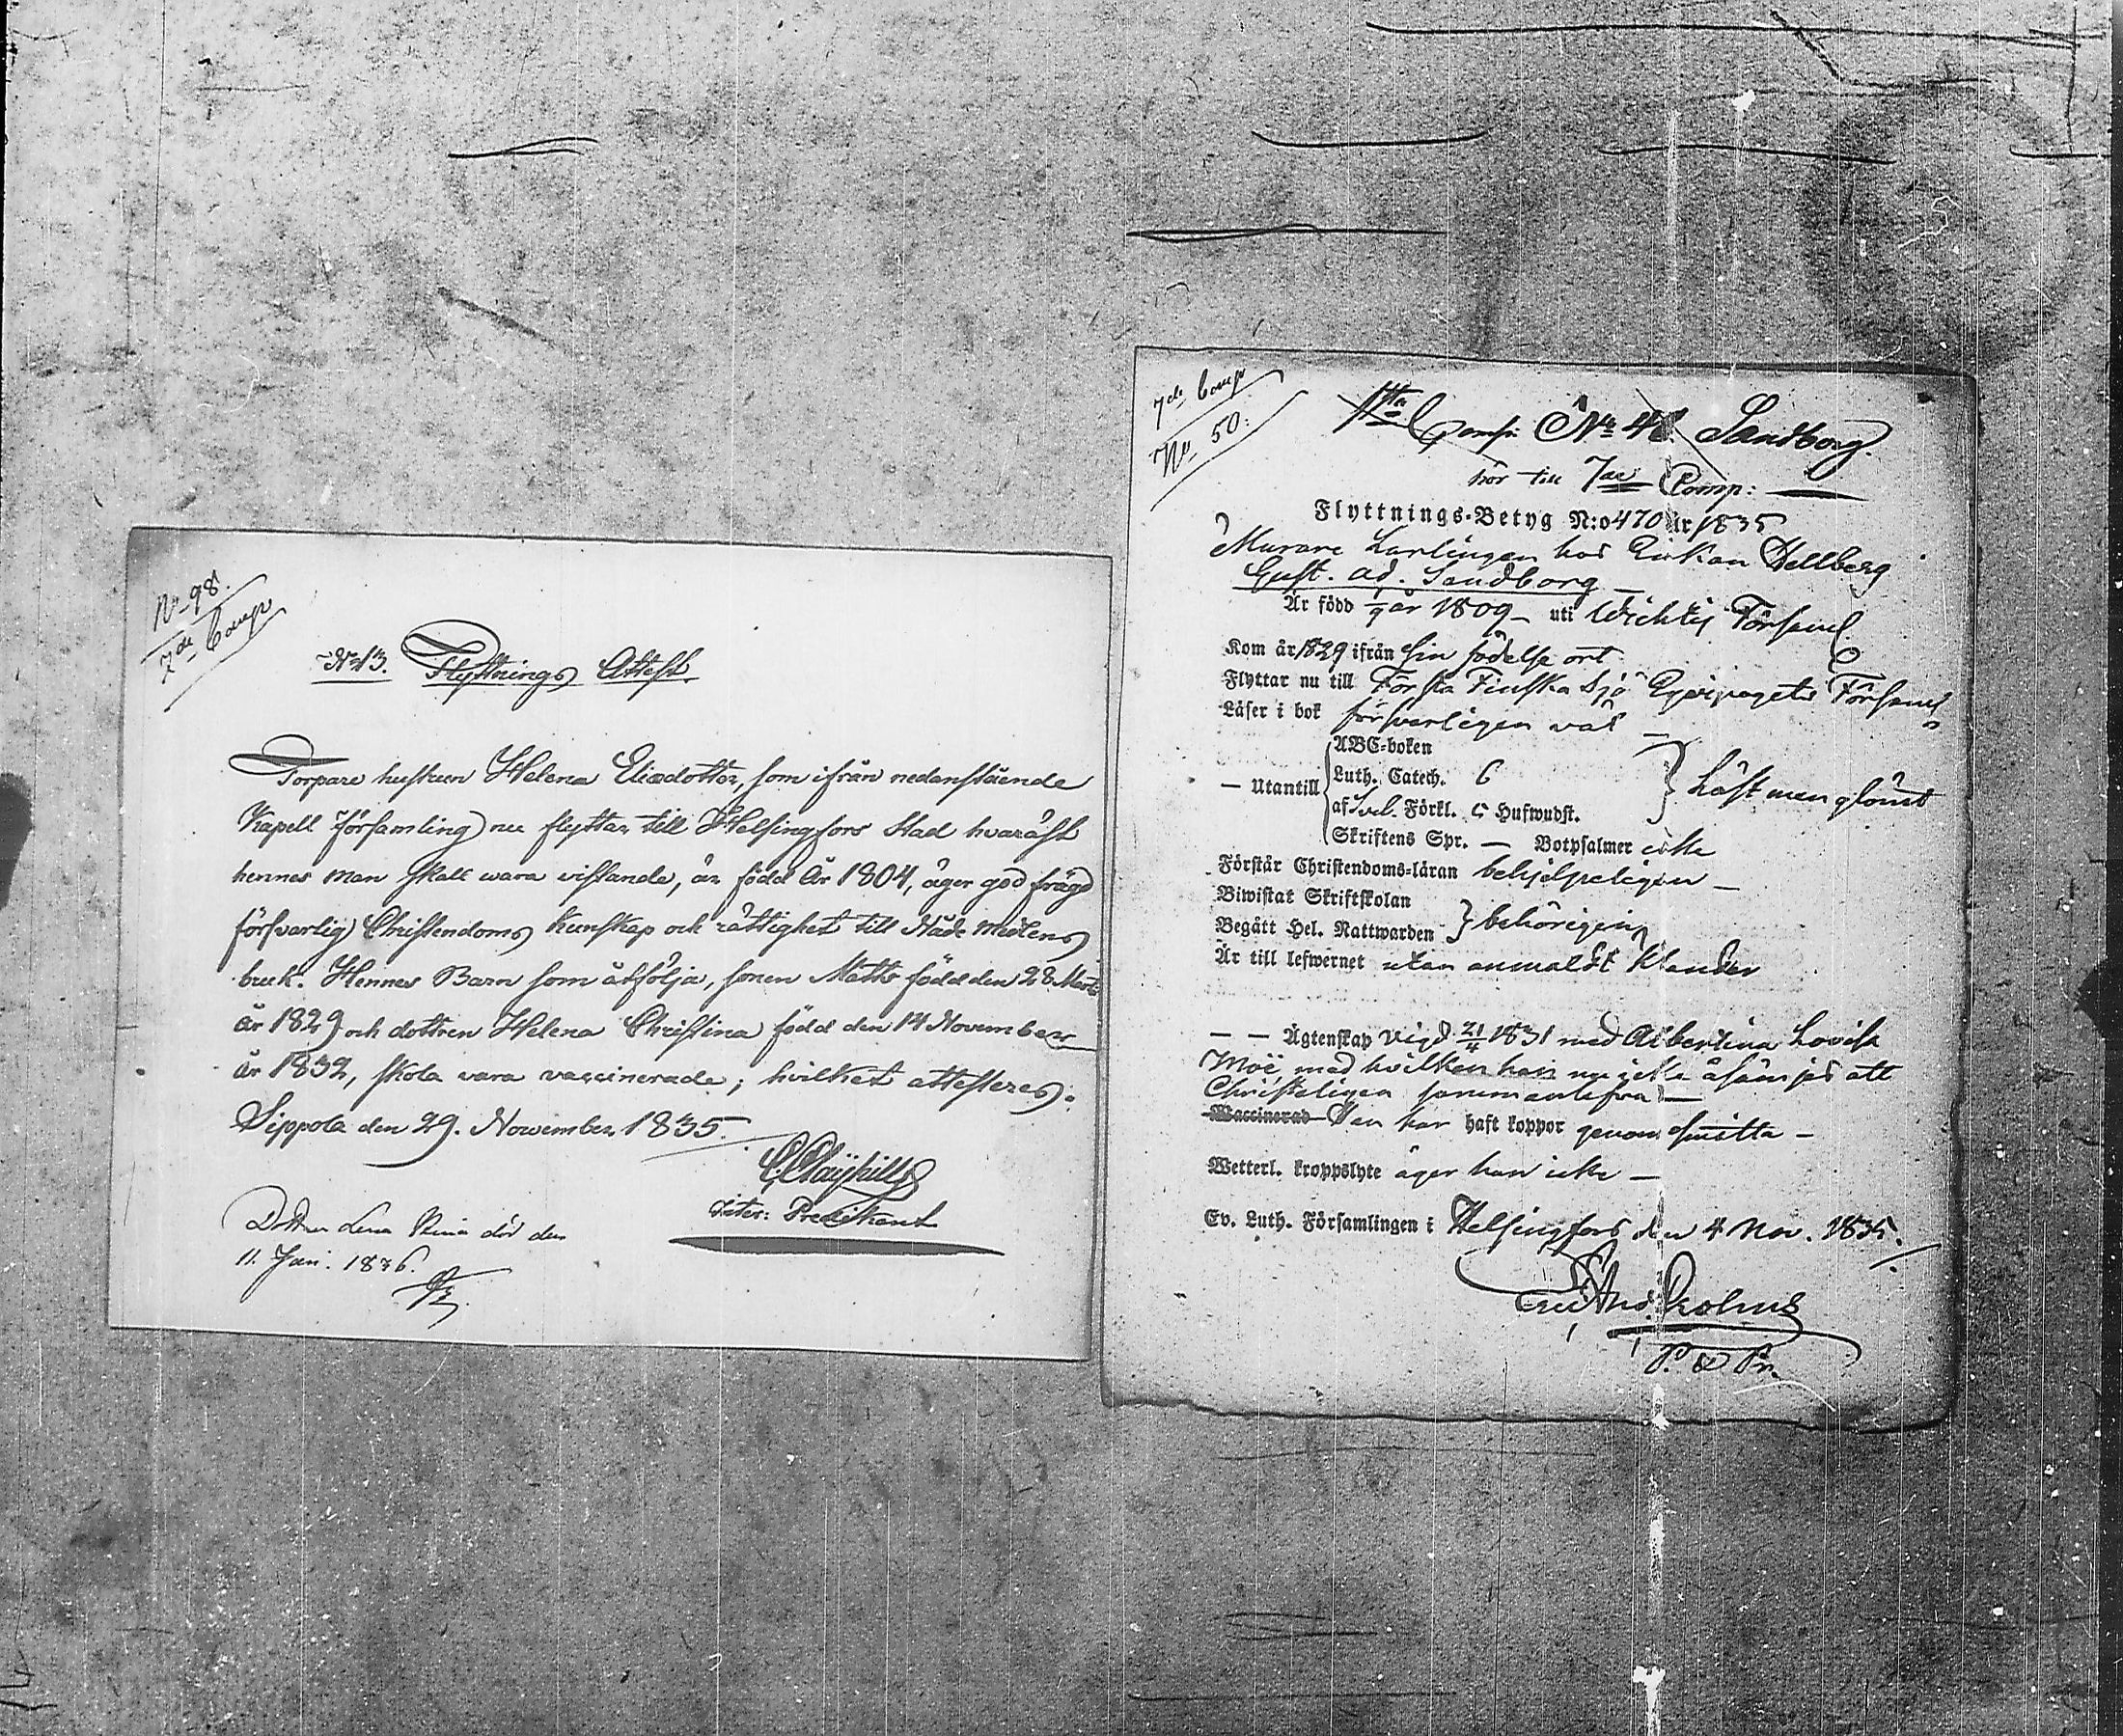 No 98.
7de Comp
No 43. Flyttnings Attest.
Torpare hustrun Helena Eliædotter, som ifrån nedanstående
Kapell Församling nu flyttar till Helsingfors Stad hvaräst
hennes man skall wara vistande, är född År 1804, äger god frägd
försvarlig Christendoms kunskap och rättighet till Nåde Medlens
bruk. Hennes Barn som åtfölja, sonen Matts född den 28 Marti
År 1829 och dottren Helena Christina född den 14 November
År 1832, skola vara vaccinerade; hvilket attesteres.
Sippola den 29. November 1835.
Predikant
Dottren Lena Stina död den
11. Jan. 1836.
7de Comp
No 50.
Comp. No Sandborg.
hör till 7de Comp:
Flyttnings-Betyg N:o 470 år 1835
Murare Lärlingen hos Enkan Hellberg
Gust. Ad. Sandborg
Är född år 1809 uti Wichtis Församl.
Kom år 1829 ifrån sin födelse ort
Flyttar nu till Första Finska Sjö Eqvipagets Församl
Läser i bok försvarligen
ABC-boken
— Utantill Luth. Catech. 6 Läst men glömt
af Svel. Förkl. 5 Hufwudst.
Skriftens Spr. — Botpsalmer icke
Förstår Christendoms-läran behjelpeligen —
Biwistat Skriftskolan
Begått Hel. Nattwarden behörigen
Är till lefwernet utan anmäldt klander
— — Ägtenskap vigd 21/4 1831 med Albertina Lovisa
med hvilken han nu icke att
Christeligen sammanlefva —
Waccinerad Han har haft koppor genom smitta —
Wetterl. kroppslyte äger han icke —
Ev. Luth. Församlingen i Helsingfors den 4 Nov. 1835.